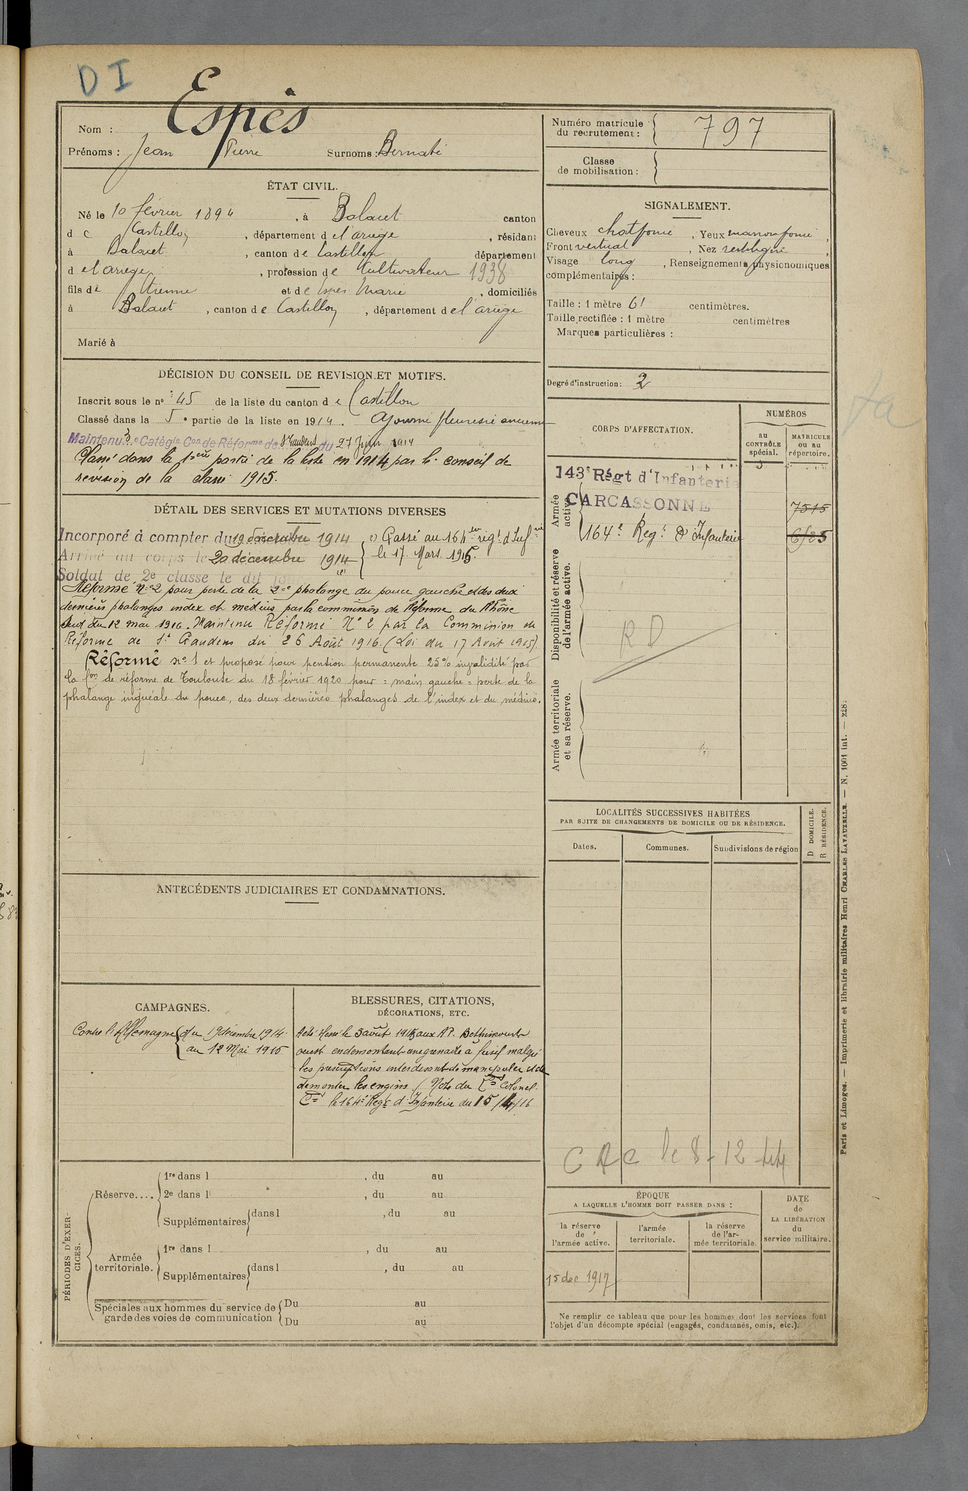 DI
Nom : Espès
Prénoms : Jean Pierre Surnoms :
Numéro matricule du recrutement : 797
Classe de mobilisation :
ÉTAT CIVIL.
Né le 10 février 1894, à Balacet canton
d e Castillon, département d el'ariège, résidant
à Balacet, canton de Castillon département
d el'ariege, profession de Cultivateur 1938
fils de Etienne et de Espès Marie, domiciliés
à Balacet, canton de Castillon, département d el'ariège
Marié à
SIGNALEMENT.
Cheveux chat foncé, Yeux marron foncé
Front vertical, Nez rectiligne
Visage long, Renseignements physionomiques
complémentaires :
Taille : 1 mètre 61 centimètres.
Taille rectifiée : 1 mètre centimètres
Marques particulières :
Degré d'instruction : 2
DÉCISION DU CONSEIL DE REVISION ET MOTIFS.
Inscrit sous le n° 45 de la liste du canton de Castillon
Classé dans la 5e partie de la liste en 1914. Ajourné pleurésie ancienne
Maintenu 3e Catégie Con de Réforme de St Gaudens du 27 Juin 1914
Classé dans la 1ere partie de la liste en 1914 par le conseil de
révision de la classe 1915.
DÉTAIL DES SERVICES ET MUTATIONS DIVERSES
Incorporé à compter du 19 décembre 1914
Arrivé au corps le 20 décembre 1914
Soldat de 2e classe le dit jour
Passé au 164eme régt d'Infrie
le 17 Mars 1915.
Réformé N° 2 pour perte de la 2me phalange du pouce gauche et des deux
dernières phalanges index et médius par la commission de Réforme du Rhône
Sud du 12 mai 1916. Maintenu Réformé N° 2 par la Commission de
Réforme de St Gaudens du 26 Août 1916 (Loi du 17 Août 1915).
Réformé n° 1 et proposé pour pension permanente 25% invalidité par
la Con de réforme de Toulouse du 18 février 1920 pour : main gauche = perte de la
phalange unguéale du pouce, des deux dernières phalanges de l'index et du médius.
CORPS D'AFFECTATION.
NUMÉROS
au CONTRÔLE spécial.
MATRICULE ou au répertoire.
Armée active.
143e Régt d'Infanterie
CARCASSONNE
7515
164e Regt d'Infanterie
6785
Disponibilité et réserve de l'armée active.
RD
Armée territoriale et sa réserve.
LOCALITÉS SUCCESSIVES HABITÉES
PAR SUITE DE CHANGEMENTS DE DOMICILE OU DE RÉSIDENCE.
Dates.
Communes.
Subdivisions de région
D DOMICILE.
R RÉSIDENCE.
ANTÉCÉDENTS JUDICIAIRES ET CONDAMNATIONS.
CAMPAGNES.
Contre l'Allemagne du 19 décembre 1914
au 12 Mai 1916
BLESSURES, CITATIONS,
DÉCORATIONS, ETC.
ouest en démontant une grenade à fusil malgré
les prescriptions interdisant de manipuler et de
démonter les engins (Note du Lt Colonel
Ct le 164e Regt d'Infanterie du 15/4/16
CAC le 8-12-44
PÉRIODES D'EXERCICES.
Réserve....
1re dans l , du au
2e dans l , du au
Supplémentaires dans l , du au
Armée territoriale.
1re dans l , du au
Supplémentaires dans l , du au
Spéciales aux hommes du service de garde des voies de communication
Du au
Du au
ÉPOQUE
A LAQUELLE L'HOMME DOIT PASSER DANS :
la réserve de l'armée active.
l'armée territoriale.
la réserve de l'armée territoriale.
DATE de LA LIBÉRATION du service militaire.
15 dec 1917
Ne remplir ce tableau que pour les hommes dont les services font
l'objet d'un décompte spécial (engagés, condamnés, omis, etc.).
Paris et Limoges. — Imprimerie et librairie militaires Henri CHARLES-LAVAUZELLE. — N. 1001 int. — 228.